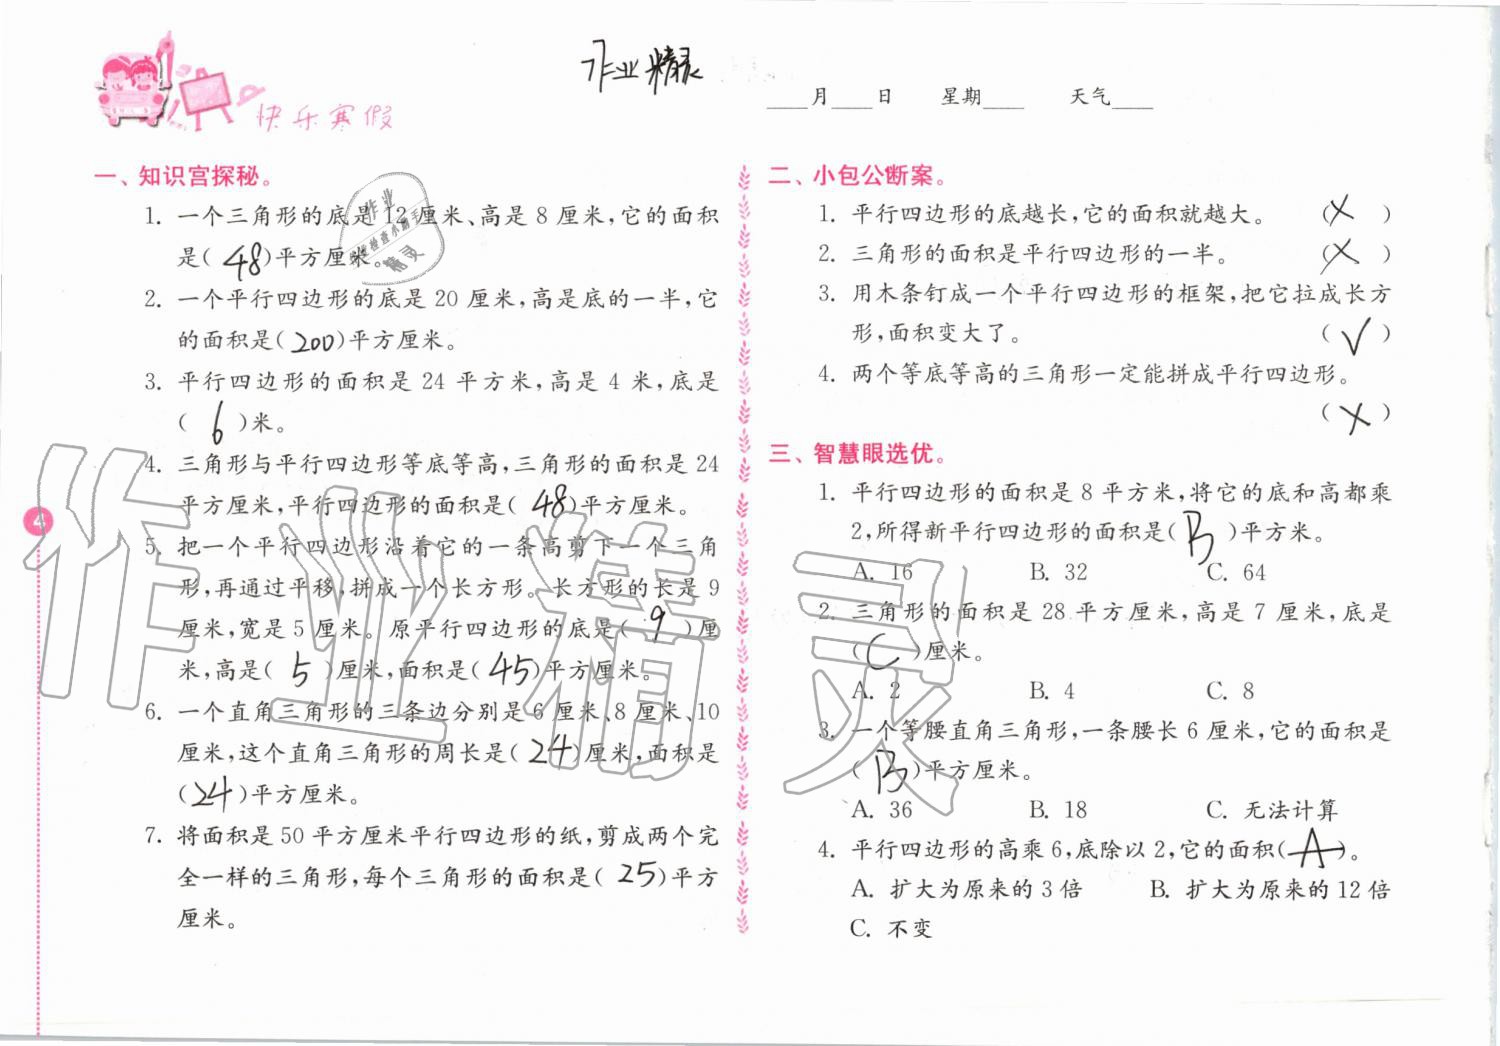 作业精灵
快乐寒假
____月____日 星期____ 天气____
一、知识宫探秘。
1. 一个三角形的底是12厘米、高是8厘米,它的面积
是( 48 )平方厘米。
2. 一个平行四边形的底是20厘米,高是底的一半,它
的面积是( 200 )平方厘米。
3. 平行四边形的面积是24平方米,高是4米,底是
( 6 )米。
4. 三角形与平行四边形等底等高,三角形的面积是24
平方厘米,平行四边形的面积是( 48 )平方厘米。
5. 把一个平行四边形沿着它的一条高剪下一个三角
形,再通过平移,拼成一个长方形。长方形的长是9
厘米,宽是5厘米。原平行四边形的底是( 9 )厘
米,高是( 5 )厘米,面积是( 45 )平方厘米。
6. 一个直角三角形的三条边分别是6厘米、8厘米、10
厘米,这个直角三角形的周长是( 24 )厘米,面积是
( 24 )平方厘米。
7. 将面积是50平方厘米平行四边形的纸,剪成两个完
全一样的三角形,每个三角形的面积是( 25 )平方
厘米。
4
二、小包公断案。
1. 平行四边形的底越长,它的面积就越大。 ( × )
2. 三角形的面积是平行四边形的一半。 ( × )
3. 用木条钉成一个平行四边形的框架,把它拉成长方
形,面积变大了。 ( √ )
4. 两个等底等高的三角形一定能拼成平行四边形。
( × )
三、智慧眼选优。
1. 平行四边形的面积是8平方米,将它的底和高都乘
2,所得新平行四边形的面积是( B )平方米。
A. 16 B. 32 C. 64
2. 三角形的面积是28平方厘米,高是7厘米,底是
( C )厘米。
A. 2 B. 4 C. 8
3. 一个等腰直角三角形,一条腰长6厘米,它的面积是
( B )平方厘米。
A. 36 B. 18 C. 无法计算
4. 平行四边形的高乘6,底除以2,它的面积( A )。
A. 扩大为原来的3倍 B. 扩大为原来的12倍
C. 不变
作业
检查小助手
精灵
作业精灵